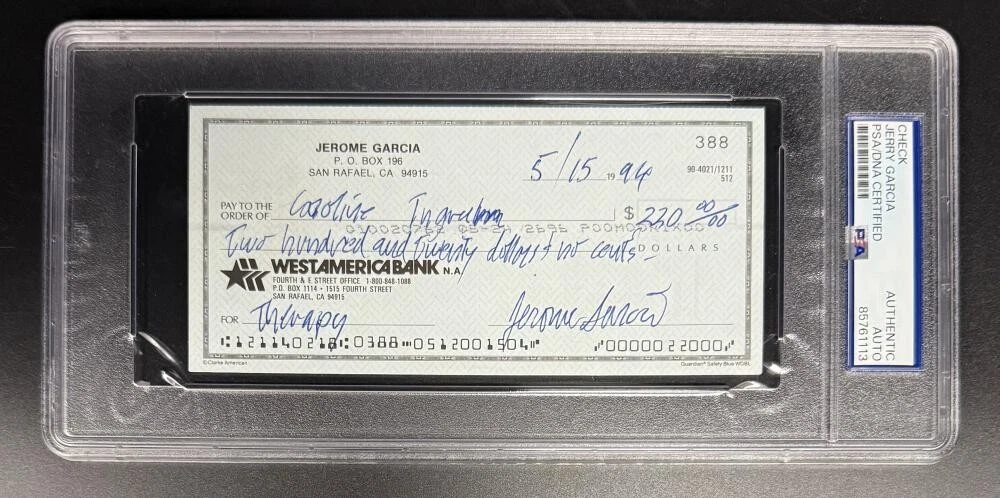 JEROME GARCIA
P. O. BOX 196
SAN RAFAEL, CA 94915
388
90-4021/1211
512
5/15 19 94
PAY TO THE
ORDER OF Caroline Ingraham $ 220 00/00
Two hundred and Twenty dollars + no cents — DOLLARS
WESTAMERICABANK N.A.
FOURTH & E STREET OFFICE 1-800-848-1088
P.O. BOX 1114 · 1515 FOURTH STREET
SAN RAFAEL, CA 94915
FOR Therapy Jerome Garcia
⑆121140218⑆0388⑈0512001504⑈ ⑈0000022000⑈
© Clarke American Guardian® Safety Blue WDBL
CHECK
JERRY GARCIA
PSA/DNA CERTIFIED
PSA
AUTHENTIC
AUTO
85761113